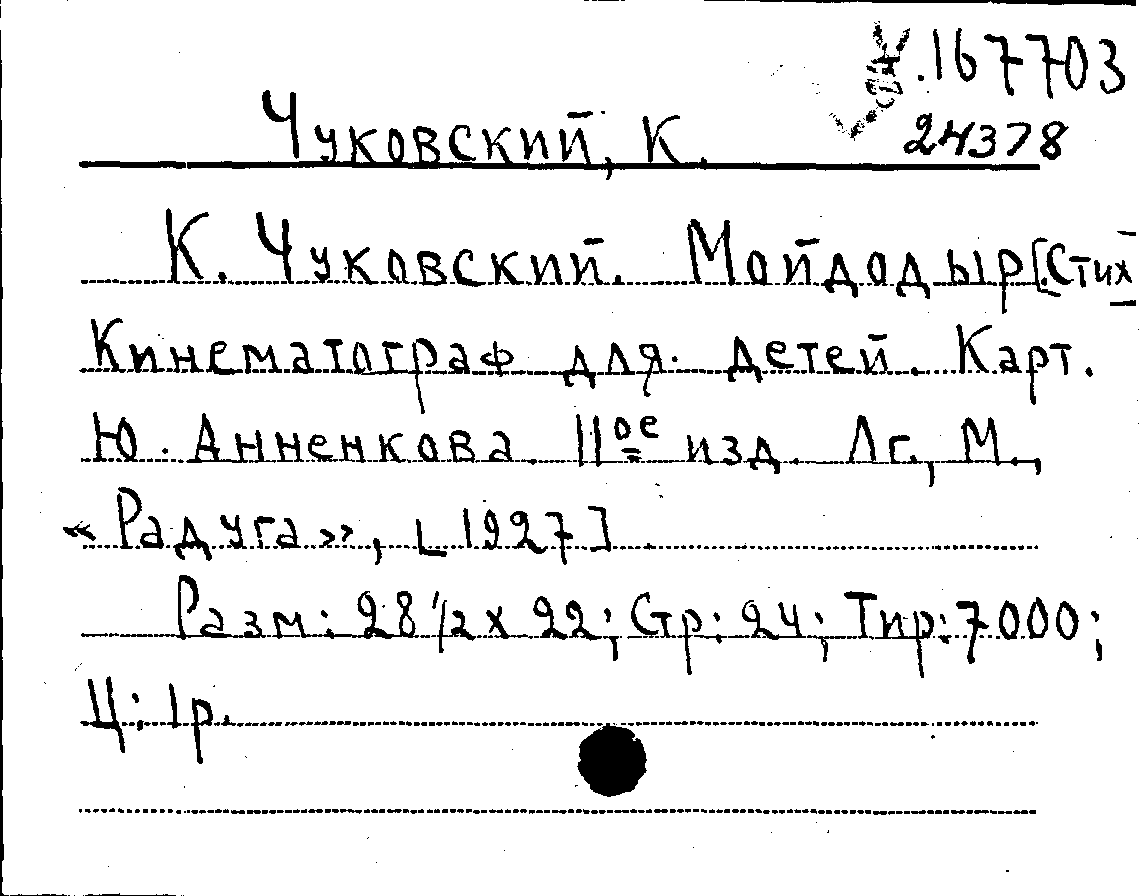 .167703
24378
Чуковский, К.
К. Чуковский. Мойдодыр [Стих
Кинематограф для детей. Карт.
Ю. Анненкова. 11ое изд. Лг., М.,
«Радуга», [1927]
Разм: 28 1/2 х 22; Стр: 24; Тир: 7000;
Ц: 1р.